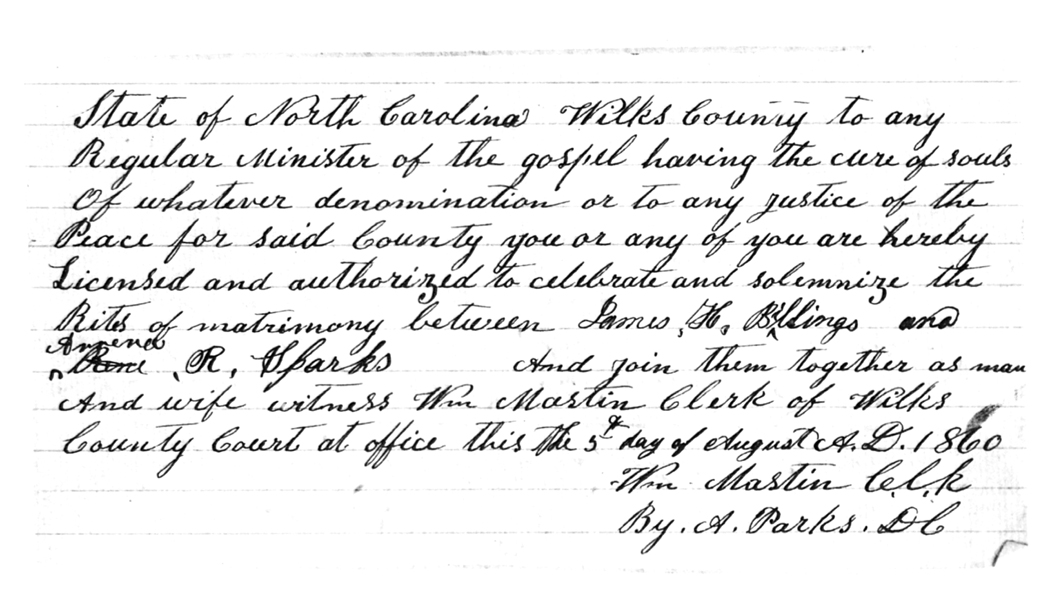 State of North Carolina Wilks County to any
Regular Minister of the gospel having the cure of souls
Of whatever denomination or to any justice of the
Peace for said County you or any of you are hereby
Licensed and authorized to celebrate and solemnize the
Rites of matrimony between James, H, Billings and
R, Sparks And join them together as man
And wife witness Wm Mastin Clerk of Wilks
County Court at office this the 5th day of August A.D. 1860
Wm Mastin C.C.k
By. A. Parks. DC